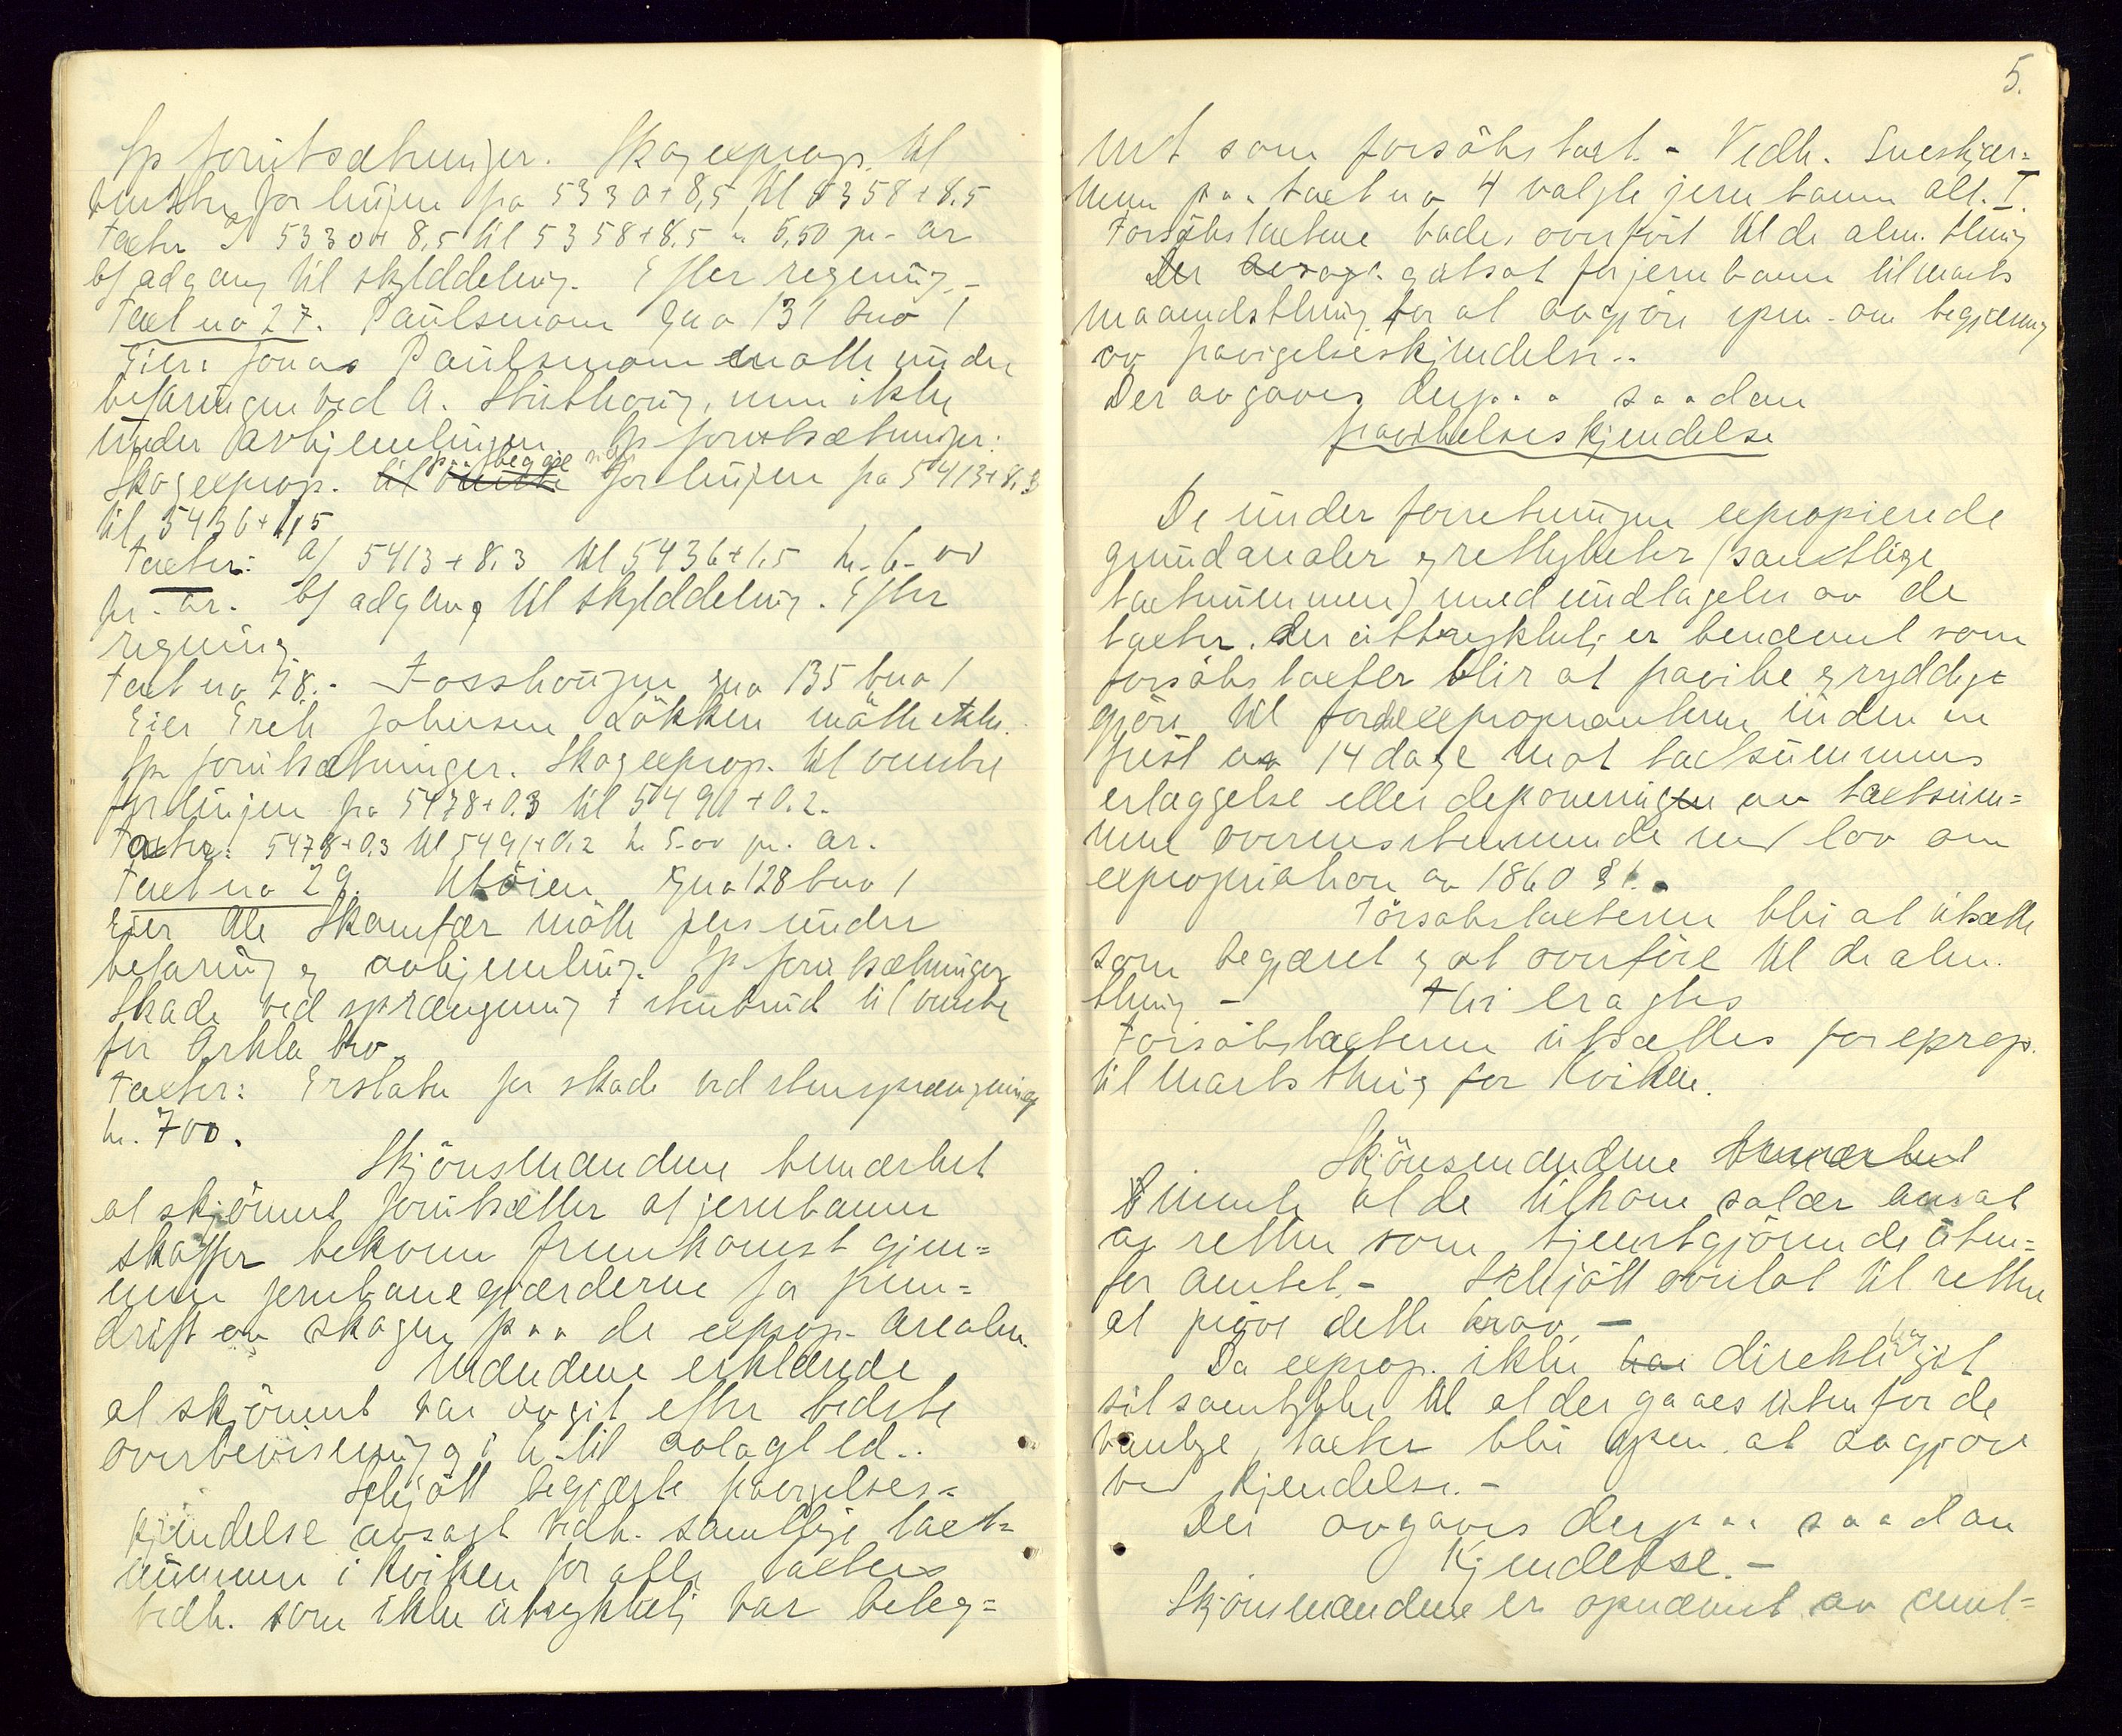 Sp forutsætninger. Skogexprop. til
venstre for linjen fra 5330+8,5 til 5358+8.5
Taxter a/ 5330+8,5 til 5358+8.5 kr 5,50 pr. ar
b/ adgang til skylddeling. Efter regning.-
Taxt no 27. Paulsmoen gno 131 bno 1
Eier Jonas Paulsmoen møtte under
befaringen ved A. Stuthoug, men ikke
under avhjemlingen Sp forutsætninger:
på begge sider
Skogexprop. til venstre for linjen fra 5413+8.3
til 5436+1,5
Taxter: a/ 5413+8.3 til 5436+1.5 kr. 6.00
pr. ar. b/ adgang til skylddeling. Efter
regning
Taxt no 28.- Fosshougen gno 135 bno 1
Eier Erik Johnsen Løkken møtte ikke.
Sp forutsætninger. Skogexprop. til venstre
for linjen fra 5478+0.3 til 5491+0.2.
Taxter: 5478+0,3 til 5491+0,2 kr 5.00 pr. ar.
Taxt no 29. Utøien gno 128 bno 1
Eier Ole Skamfær møtte pers under
befaring og avhjemling. Sp forutsætninger
Skade ved sprængning i stenbrud til venstre
for Orkla bro.
Taxter: Erstatn for skade ved stensprængning
kr. 700.
Skjønsmændene bemærket
at skjønnet forutsætter at jernbanen
skaffer bekvem fremkomst gjen=
nem jernbanegjærderne for frem=
drift av skogen paa de exprop. arealer.
Mændene erklærede
at skjønnet var avgit efter bedste
overbevisning og i h. til avlagt ed..
Schjøtt begjærte fravigelses=
kjendelse avsagt vedk. samtlige taxt=
nummere i Kvikne for alle taxters
vedk. som ikke utrykkelig var beteg=
5.
net som forsøkstaxt.- Vedk. Sneskjær=
mene paa taxt no 4 valgte jernbanen alt. I.
Forsøkstaxterne bades overført til de alm. thing
Der utsat for jernbanen til marts
maanedsthing for at avgjøre spm. om begjæring
av fravigelseskjendelse..
Der avgaves derpaa saadan
fravikelseskjendelse
De under forretningen expropierede
grundarealer og rettigheter (samtlige
taxtnummere) med undtagelse av de
taxter. der uttrykkelig er benævnt som
forsøkstaxter blir at fravike og ryddig=
gjøre til for expropriantene inden en
frist av 14 dage mot taxtsummens
erlæggelse eller deponeringen av taxtsum=
mene overensstemmende med lov om
expropriation av 1860 § 1.
Forsøkstaxterne blir at utsætte
som begjæret og at overføre til de alm.
thing - Thi eragtes
Forsøkstaxterne utsættes for exprop.
til marts thing for Kvikne.
Skjønsmændene bemærket
mente at de tilkom salær ansat
av retten som tjenstgjørende uten=
for amtet.- Schjøtt overlot til retten
at prøve dette krav.-
Da exprop. ikke har direkte har git
sit samtykke til at der gaaes utenfor de
vanlige taxter blir spm. at avgjøre
ved kjendelse.-
Der avgaves derpaa saadan
Kjendelse.-
Skjønsmændene er opnævnt av amt=